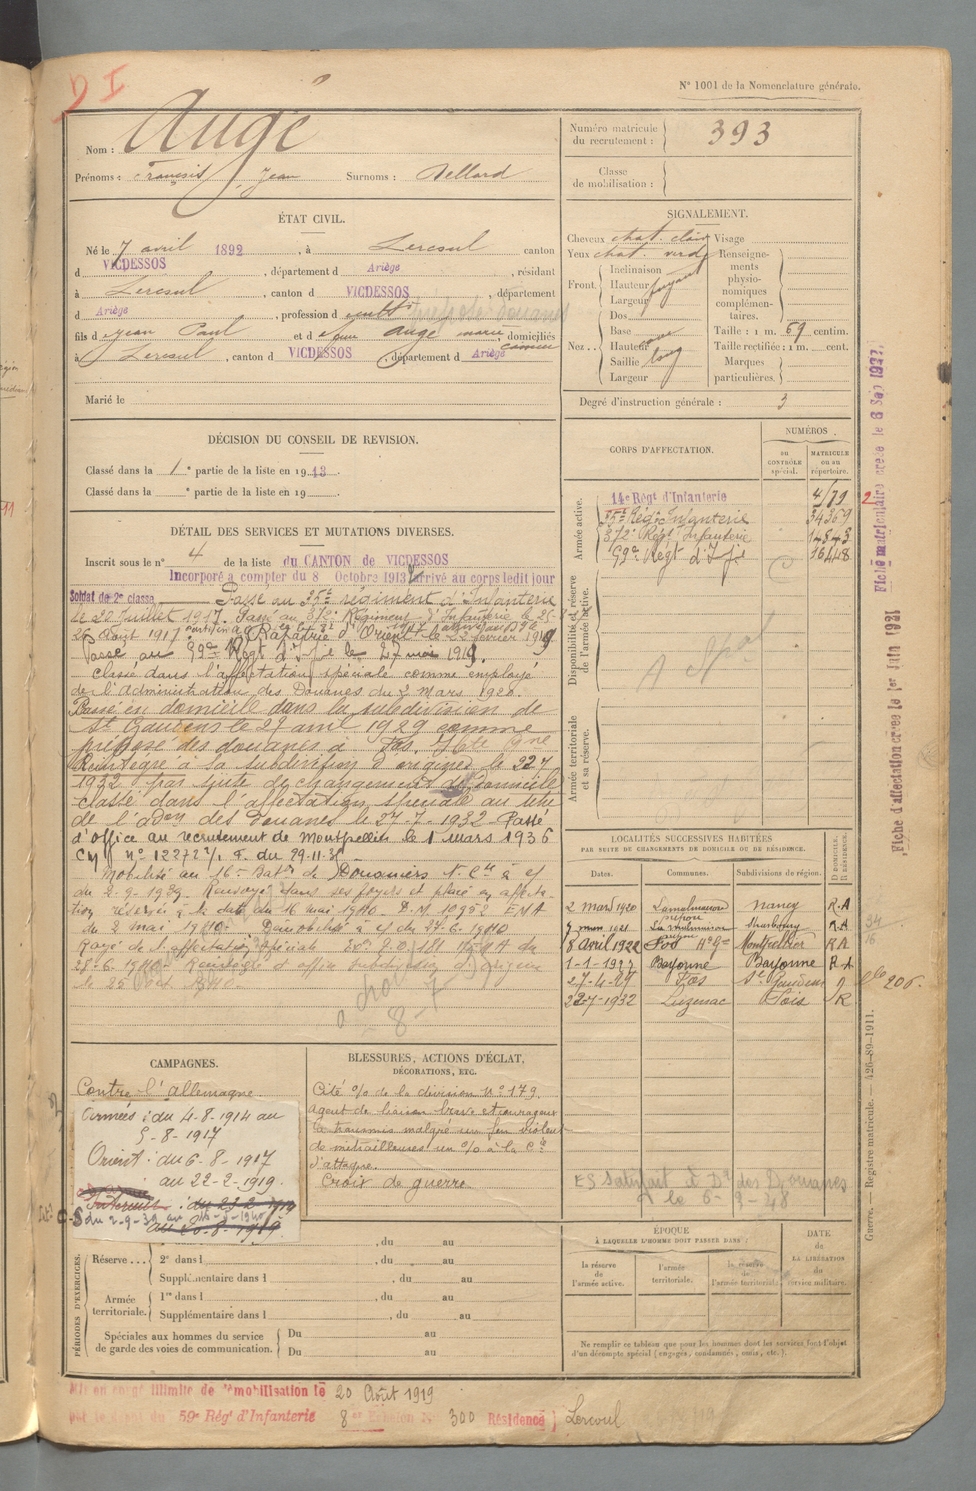 D I
N° 1001 de la Nomenclature générale.
Nom : Augé
Prénoms : François, Jean Surnoms : Dellard
Numéro matricule du recrutement : 393
Classe de mobilisation :
ÉTAT CIVIL.
Né le 7 avril 1892, à Lercoul canton
d VICDESSOS, département d Ariège, résidant
à Lercoul, canton d VICDESSOS, département
d Ariège, profession d préposé douanes
fils d Jean Paul et d Augé Marie, domiciliés
à Lercoul, canton d VICDESSOS, département d Ariège
Marié le
SIGNALEMENT.
Cheveux chat. clair Visage
Yeux chat. verd
Front. Inclinaison fuyant
Hauteur
Largeur
Nez.. Dos
Base
Hauteur
Saillie long
Largeur
Renseignements physionomiques complémentaires.
Taille : 1 m. 69 centim.
Taille rectifiée : 1 m. cent.
Marques particulières.
Degré d'instruction générale : 3
DÉCISION DU CONSEIL DE REVISION.
Classé dans la 1e partie de la liste en 1913.
Classé dans la e partie de la liste en 19
CORPS D'AFFECTATION.
NUMÉROS
au CONTRÔLE spécial.
MATRICULE ou au répertoire.
Armée active.
14e Régt d'Infanterie 4179
35e Régt Infanterie 34369
372e Régt Infanterie 14843
59e Régt d'Ife 16448
Disponibilité et réserve de l'armée active.
Armée territoriale et sa réserve.
DÉTAIL DES SERVICES ET MUTATIONS DIVERSES.
Inscrit sous le n° 4 de la liste du CANTON de VICDESSOS
Incorporé à compter du 8 Octobre 1913 arrivé au corps ledit jour
Soldat de 2e classe Passé au 35e régiment d'Infanterie
le 20 Juillet 1917. Passé au 372e Régiment d'Infanterie le 25-8
26 Août 1917 Rapatrié d'Orient le 22 février 1919
Passé au 59e Régt d'Ife le 27 mai 1919.
Classé dans l'affectation spéciale comme employé
de l'Administration des Douanes du 2 Mars 1920.
Passé en domicile dans la subdivision de
St Gaudens le 27 avril 1929 comme
préposé des douanes à Fos, Hte Gne
Réintégré à la subdivision d'origine le 22 7
1932 par suite de changement de domicile
classé dans l'affectation spéciale au titre
de l'adon des Douanes le 27-7-1932 Passé
d'office au recrutement de Montpellier le 1 mars 1936
CM n° 12272 1/1 du 29-11-3
Mobilisé au 16e Batn de Douaniers
du 2-9-1939. Renvoyé dans ses foyers et placé en affecta-
tion réservée à la date du 16 mai 1940. D.M. 10952 EMA
du 2 mai 1940. Démobilisé du 27-6-1940
Rayé de l'affectation spéciale
28-6-1940. Réintégré d'office subdivision d'origine
le 25 Oct 1940
LOCALITÉS SUCCESSIVES HABITÉES
PAR SUITE DE CHANGEMENTS DE DOMICILE OU DE RÉSIDENCE.
Dates. Communes. Subdivisions de région. D DOMICILE. R RÉSIDENCE.
2 mars 1920 Lamalmaison Nancy R.A
9 mars 1921 La Malmaison Strasbourg R.A
8 avril 1922 Fos Hte Gne Montpellier R A
1-1-1927 Bayonne Bayonne R-A
27-4-27 Fos St Gaudens D
22-7-1932 Luzenac Foix R
34
16
206.
CAMPAGNES.
Contre l'allemagne.
Armées : du 4-8-1914 au
5-8-1917
Orient : du 6-8-1917
au 22-2-1919.
Intérieur : du 23-2-1919
au 20-8-1919.
C.S du 2-9-39 au 16-5-1940
BLESSURES, ACTIONS D'ÉCLAT,
DÉCORATIONS, ETC.
Cité % de la division N° 179
agent de liaison brave et courageux
a transmis malgré un feu violent
de mitrailleuses un % à la Cie
d'attaque.
Croix de guerre
ES Satisfait à Dr des Douanes
le 6-9-48
PÉRIODES D'EXERCICES.
, du au
Réserve ... 2e dans l , du au
Supplémentaire dans l , du au
Armée territoriale. 1re dans l , du au
Supplémentaire dans l , du au
Spéciales aux hommes du service de garde des voies de communication. Du au
Du au
ÉPOQUE
À LAQUELLE L'HOMME DOIT PASSER DANS :
la réserve de l'armée active.
l'armée territoriale.
la réserve de l'armée territoriale.
DATE de LA LIBÉRATION du service militaire.
Ne remplir ce tableau que pour les hommes dont les services font l'objet
d'un décompte spécial (engagés, condamnés, omis, etc.).
Mis en congé illimité de démobilisation le 20 Août 1919
par le dépôt du 59e Rég' d'Infanterie 8e Echelon N° 300 Résidence Lercoul
Fiche d'affectation créée le 1er Juin 1921
Fiche matriculaire créée le 8 Sep 1937.
Guerre. — Registre matricule. — 426-89-1911.